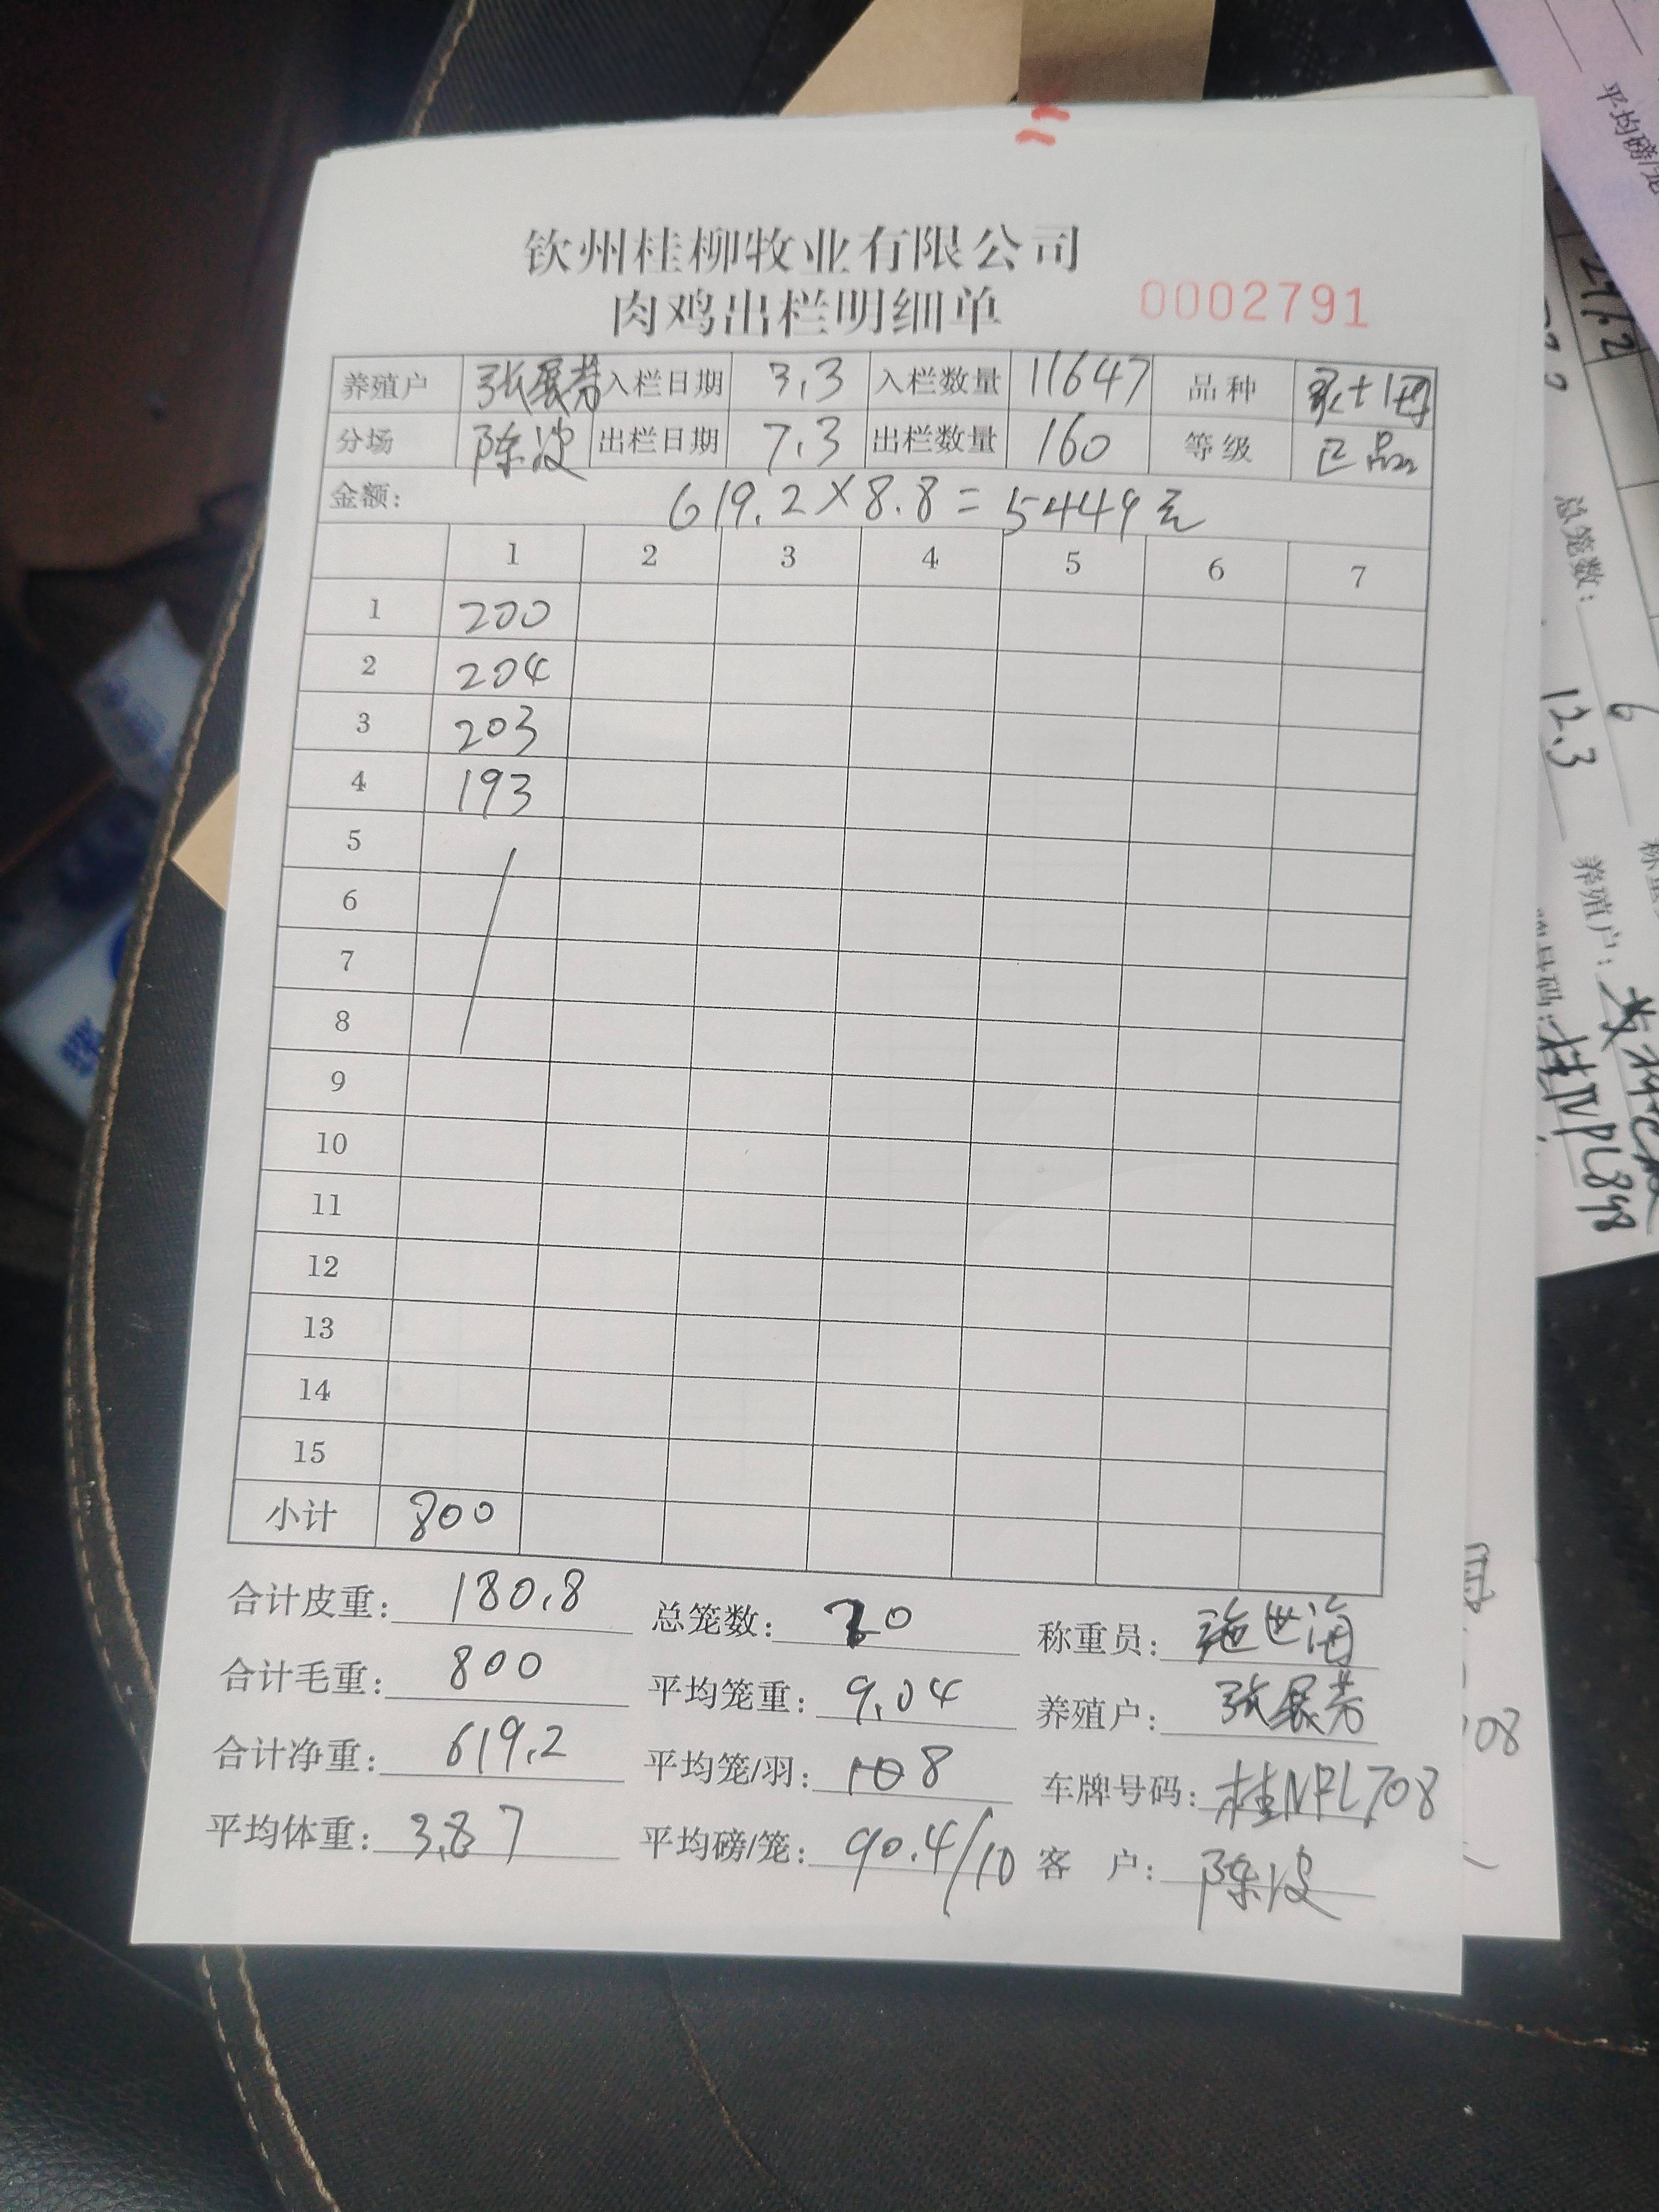 钦州桂柳牧业有限公司
肉鸡出栏明细单 0002791
养殖户 张展芳 入栏日期 3.3 入栏数量 11647 品种
分场 陈波 出栏日期 7.3 出栏数量 160 等级 正品
金额: 619.2×8.8=5449元
1 2 3 4 5 6 7
1 200
2 204
3 203
4 193
5
6
7
8
9
10
11
12
13
14
15
小计 800
合计皮重: 180.8 总笼数: 20 称重员: 施世海
合计毛重: 800 平均笼重: 9.04 养殖户: 张展芳
合计净重: 619.2 平均笼/羽: 8 车牌号码: 桂NPL708
平均体重: 3.87 平均磅/笼: 90.4/10 客 户: 陈波
平均磅/笼
总笼数: 6
12.3
养殖户:
号码: 桂NPL898
708